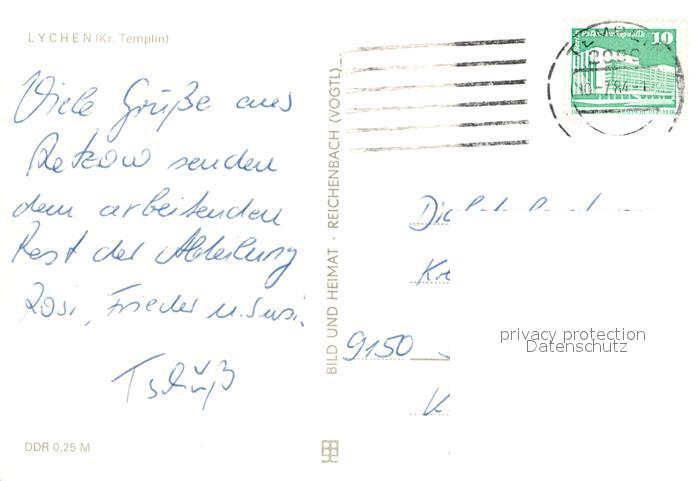 LYCHEN (Kr. Templin)
Viele Grüße aus
Retzow senden
dem arbeitenden
Rest der Abteilung
Rosi, Frieder u. Susi.
Tschüß
DDR 0,25 M
BILD UND HEIMAT · REICHENBACH (VOGTL)
10
9150
privacy protection
Datenschutz